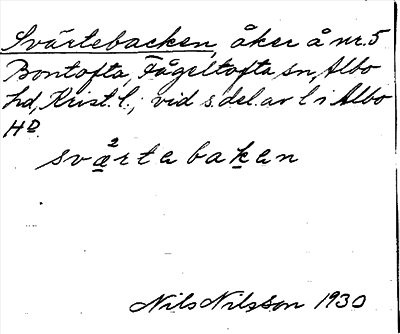 Svärtebacken, åker å nr. 5
Bontofta, Fågeltofta sn, Albo
hd, Krist. l., vid s. del. av l i Albo
HD.
svä²rtebaken
Nils Nilsson 1930